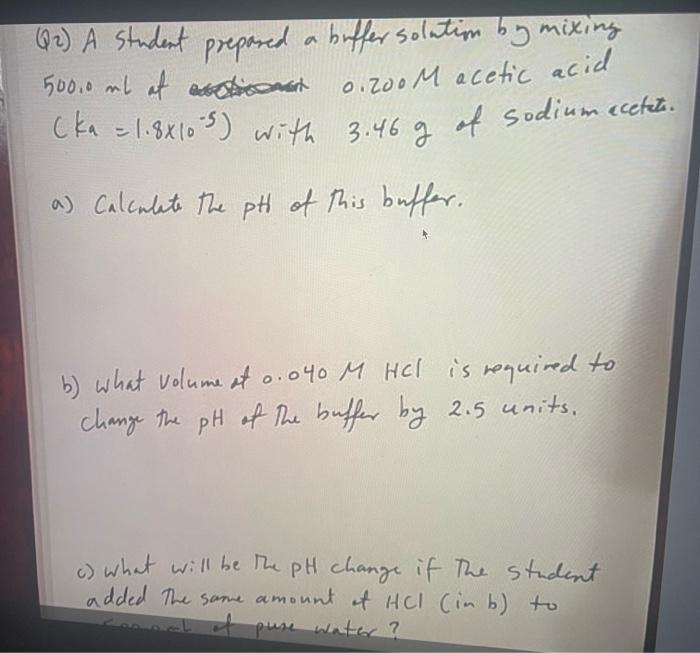 Q2) A student prepared a buffer solution by mixing
500.0 ml of 0.200 M acetic acid
(ka = 1.8x10⁻⁵) with 3.46 g of sodium acetate.
a) Calculate the pH of this buffer.
b) what volume of 0.040 M HCl is required to
change the pH of the buffer by 2.5 units.
c) what will be the pH change if the student
added the same amount of HCl (in b) to
of pure water?